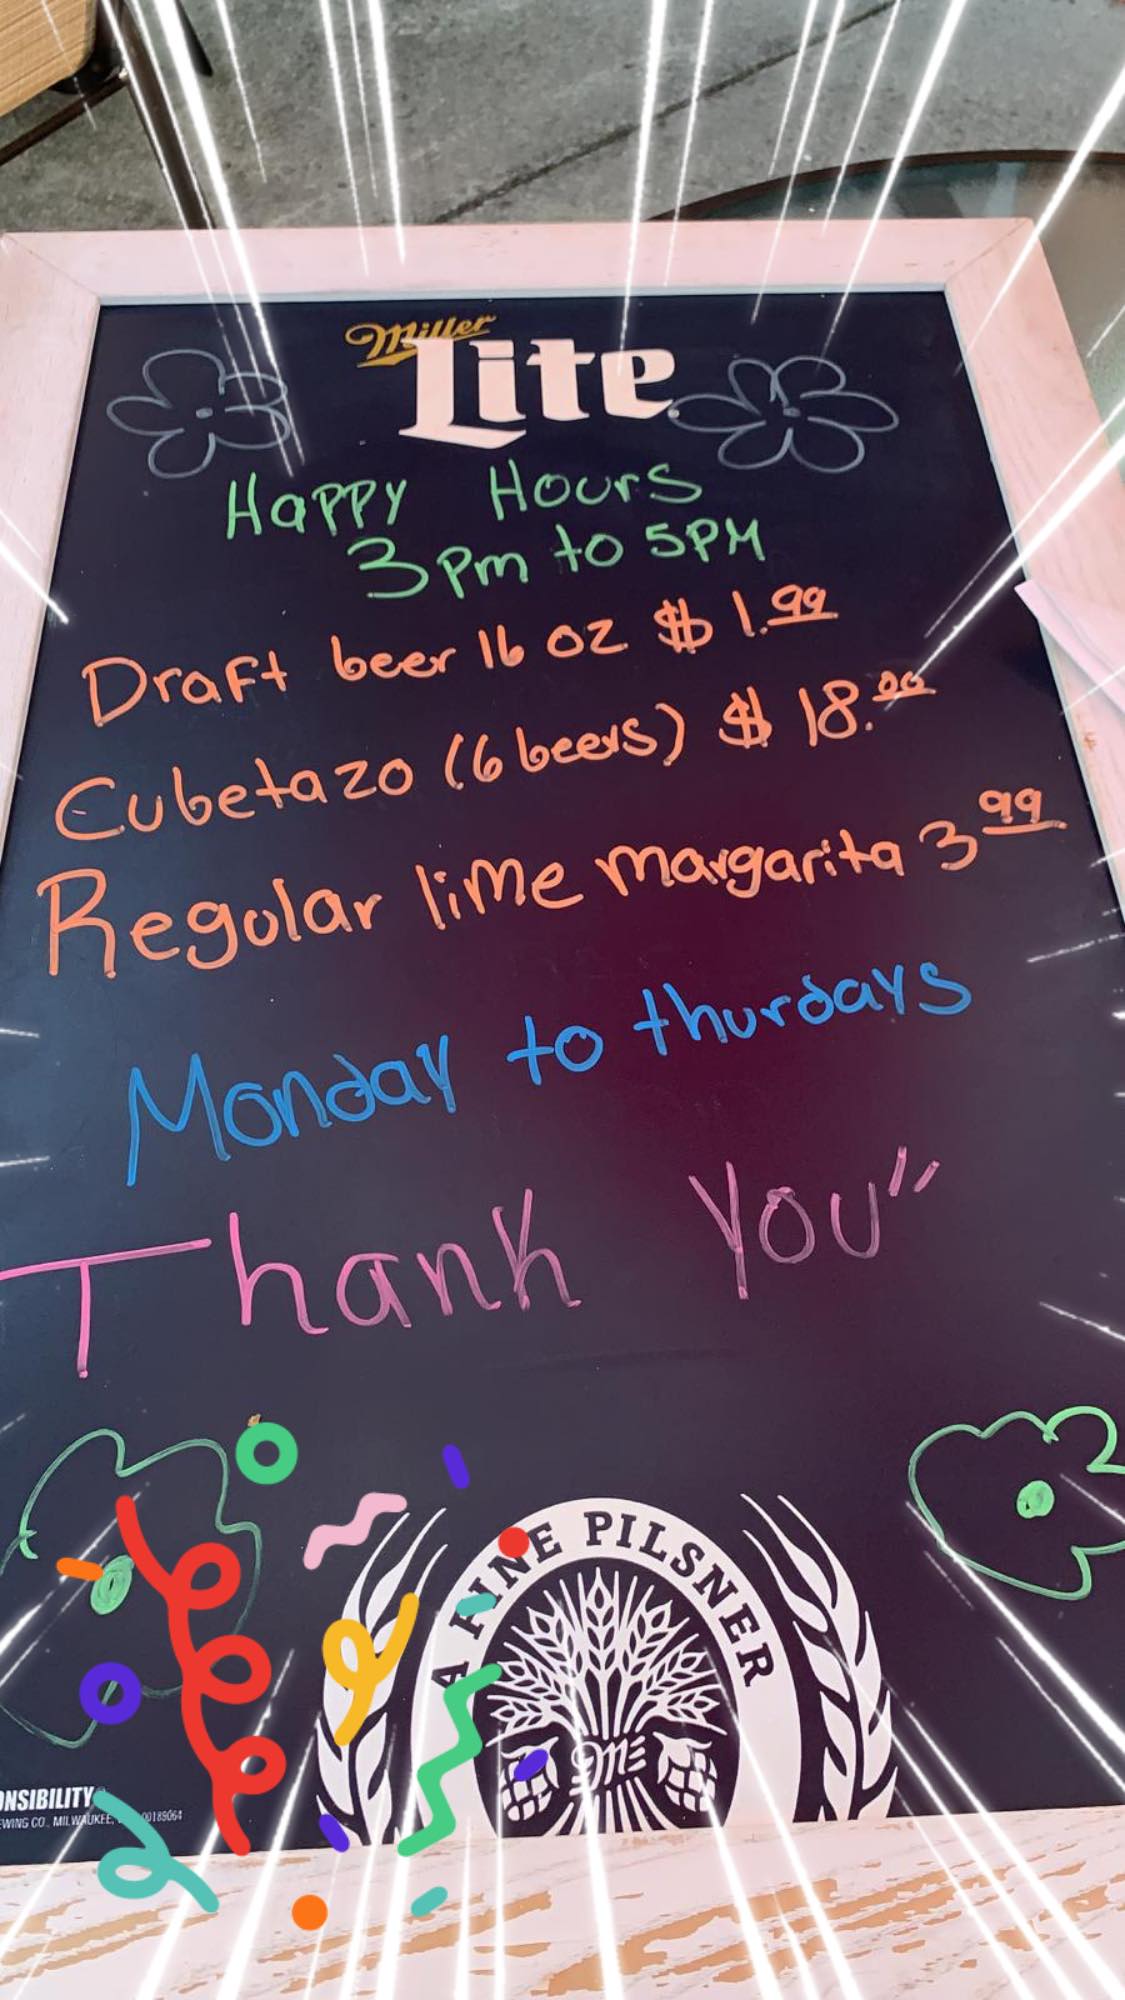 Miller
Lite
Happy Hours
3pm to 5PM
Draft beer 16 oz $ 1.99
Cubetazo (6 beers) $ 18.00
Regular lime margarita 3 99
Monday to thurdays
Thank You"
A FINE PILSNER
ONSIBILITY
EWING CO., MILWAUKEE, 00189064